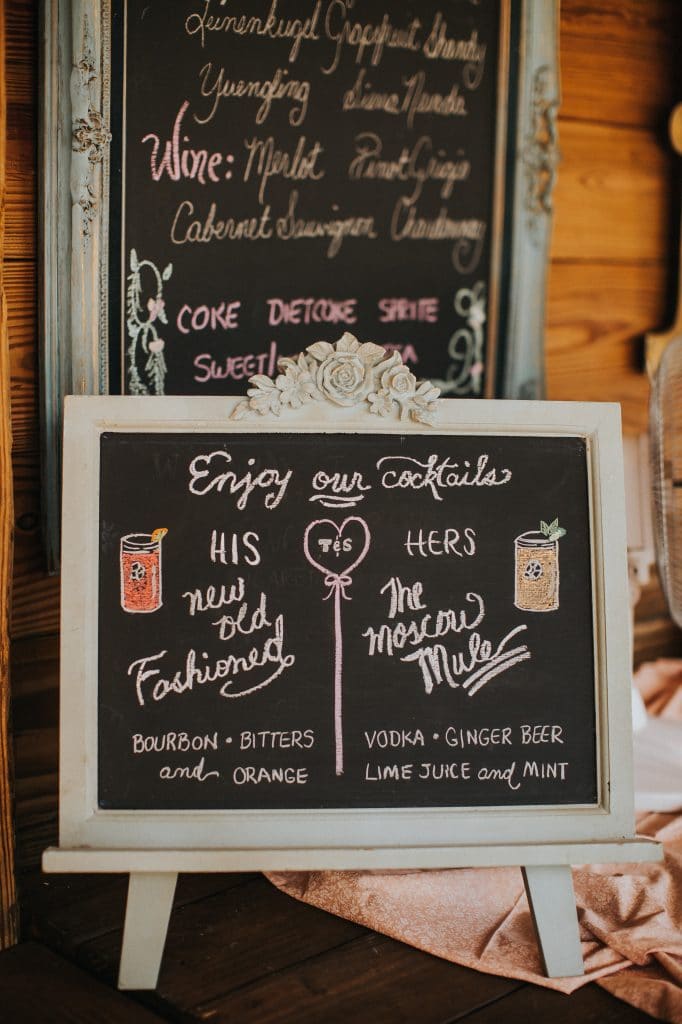 Leinenkugel Grapefruit Shandy
Yuengling Sierra Nevada
Wine: Merlot Pinot Grigio
Cabernet Sauvignon Chardonnay
COKE DIET COKE SPRITE
SWEET/
Enjoy our cocktails
HIS T&S HERS
new old Fashioned
The Moscow Mule
BOURBON • BITTERS
and ORANGE
VODKA • GINGER BEER
LIME JUICE and MINT